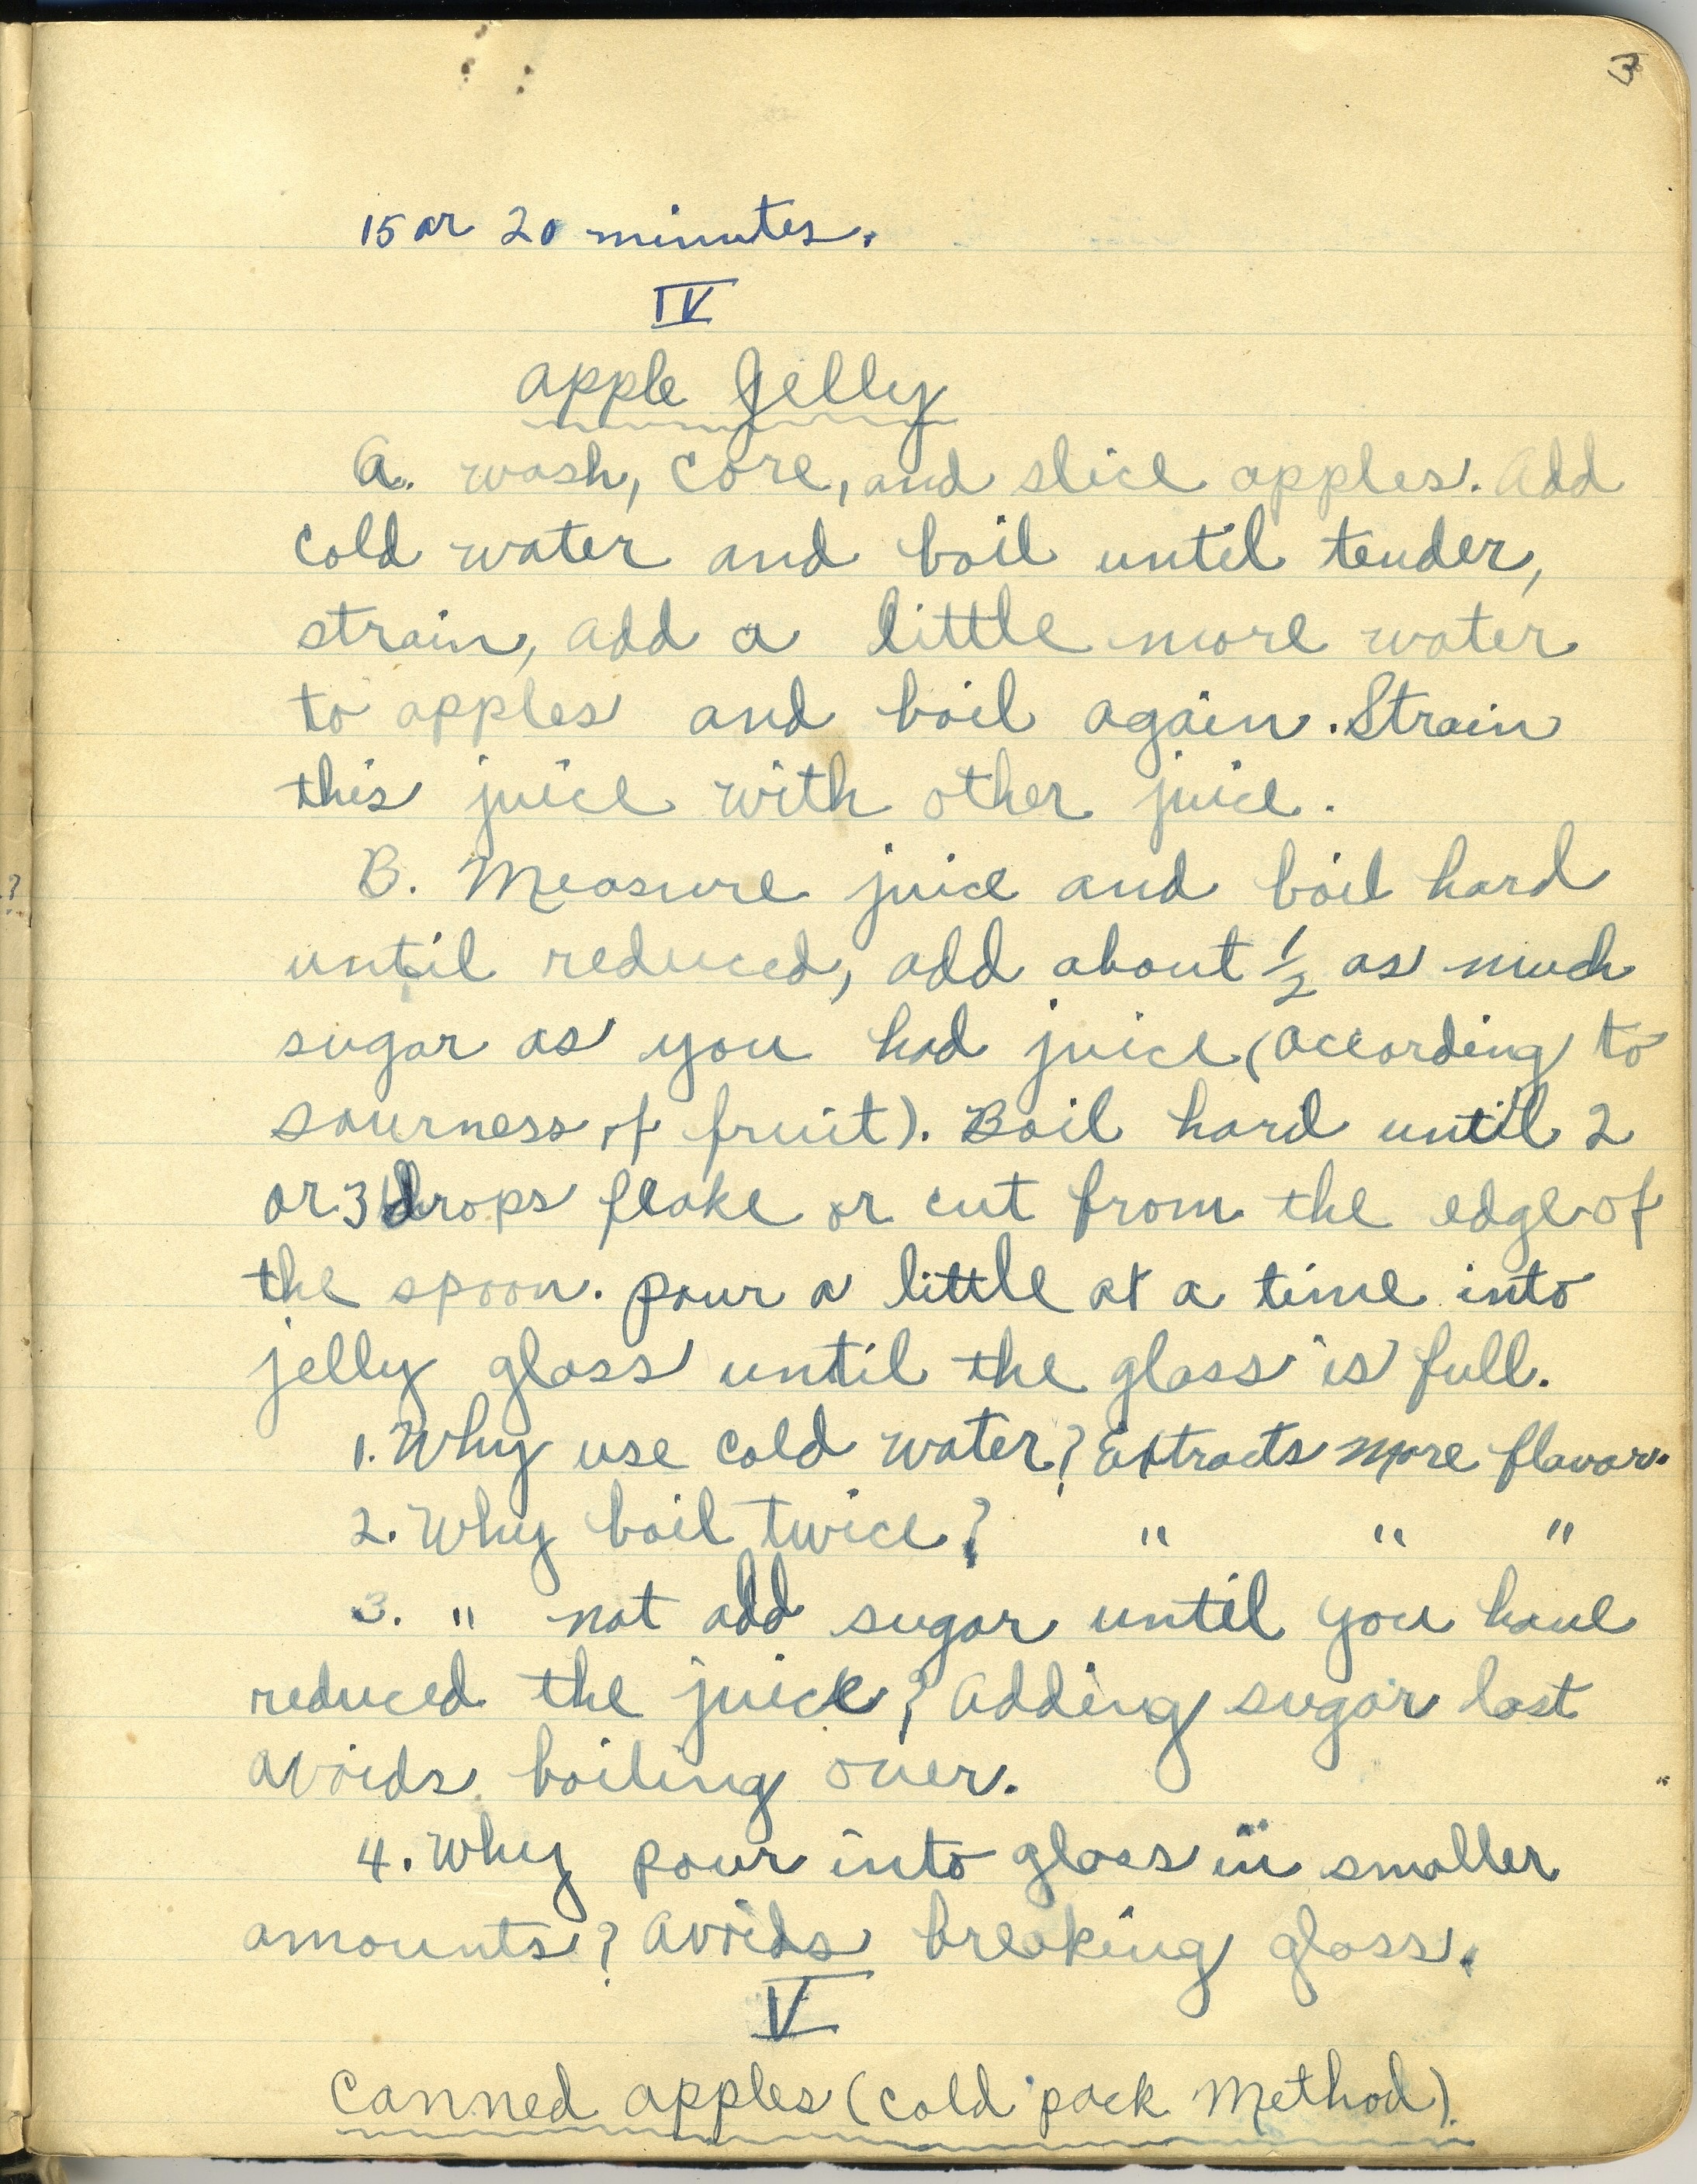 3
15 or 20 minutes.
IV
apple Jelly
A. wash, core, and slice apples. Add
cold water and boil until tender,
strain, add a little more water
to apples and boil again. Strain
this juice with other juice.
B. Measure juice and boil hard
until reduced, add about 1/2 as much
sugar as you had juice (according to
sourness of fruit). Boil hard until 2
or 3 drops flake or cut from the edge of
the spoon. pour a little at a time into
jelly glass until the glass is full.
1. Why use cold water? Extracts more flavor.
2. Why boil twice? " " "
3. " not add sugar until you have
reduced the juice? Adding sugar last
avoids boiling over.
4. Why pour into glass in smaller
amounts? Avoids breaking glass.
V
Canned apples (cold pack Method).